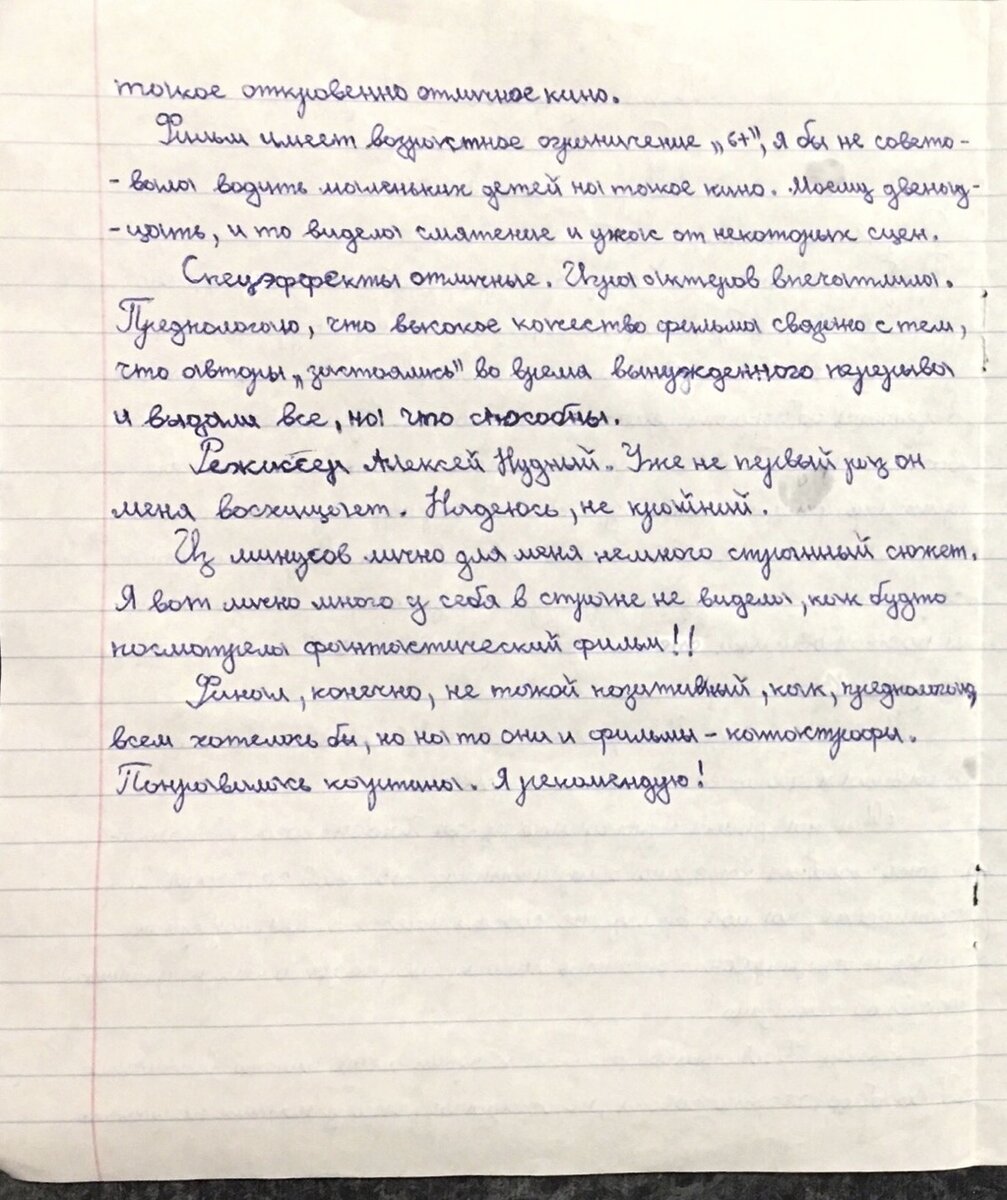 такое откровенно отличное кино.
Фильм имеет возрастное ограничение „6+", я бы не совето-
-вала водить маленьких детей на такое кино. Моему двенад-
-цать, и то видела смятение и ужас от некоторых сцен.
Спецэффекты отличные. Игра актеров впечатлила.
Предполагаю, что высокое качество фильма связано с тем,
что авторы „застоялись" во время вынужденного перерыва
и выдали все, на что способны.
Режиссер Алексей Нудный. Уже не первый раз он
меня восхищает. Надеюсь, не крайний.
Из минусов лично для меня немного странный сюжет.
Я вот лично много у себя в стране не видела, как будто
посмотрела фантастический фильм!!
Финал, конечно, не такой позитивный, как, предполагаю,
всем хотелось бы, но на то они и фильмы - катастрофы.
Понравилась картина. Я рекомендую!